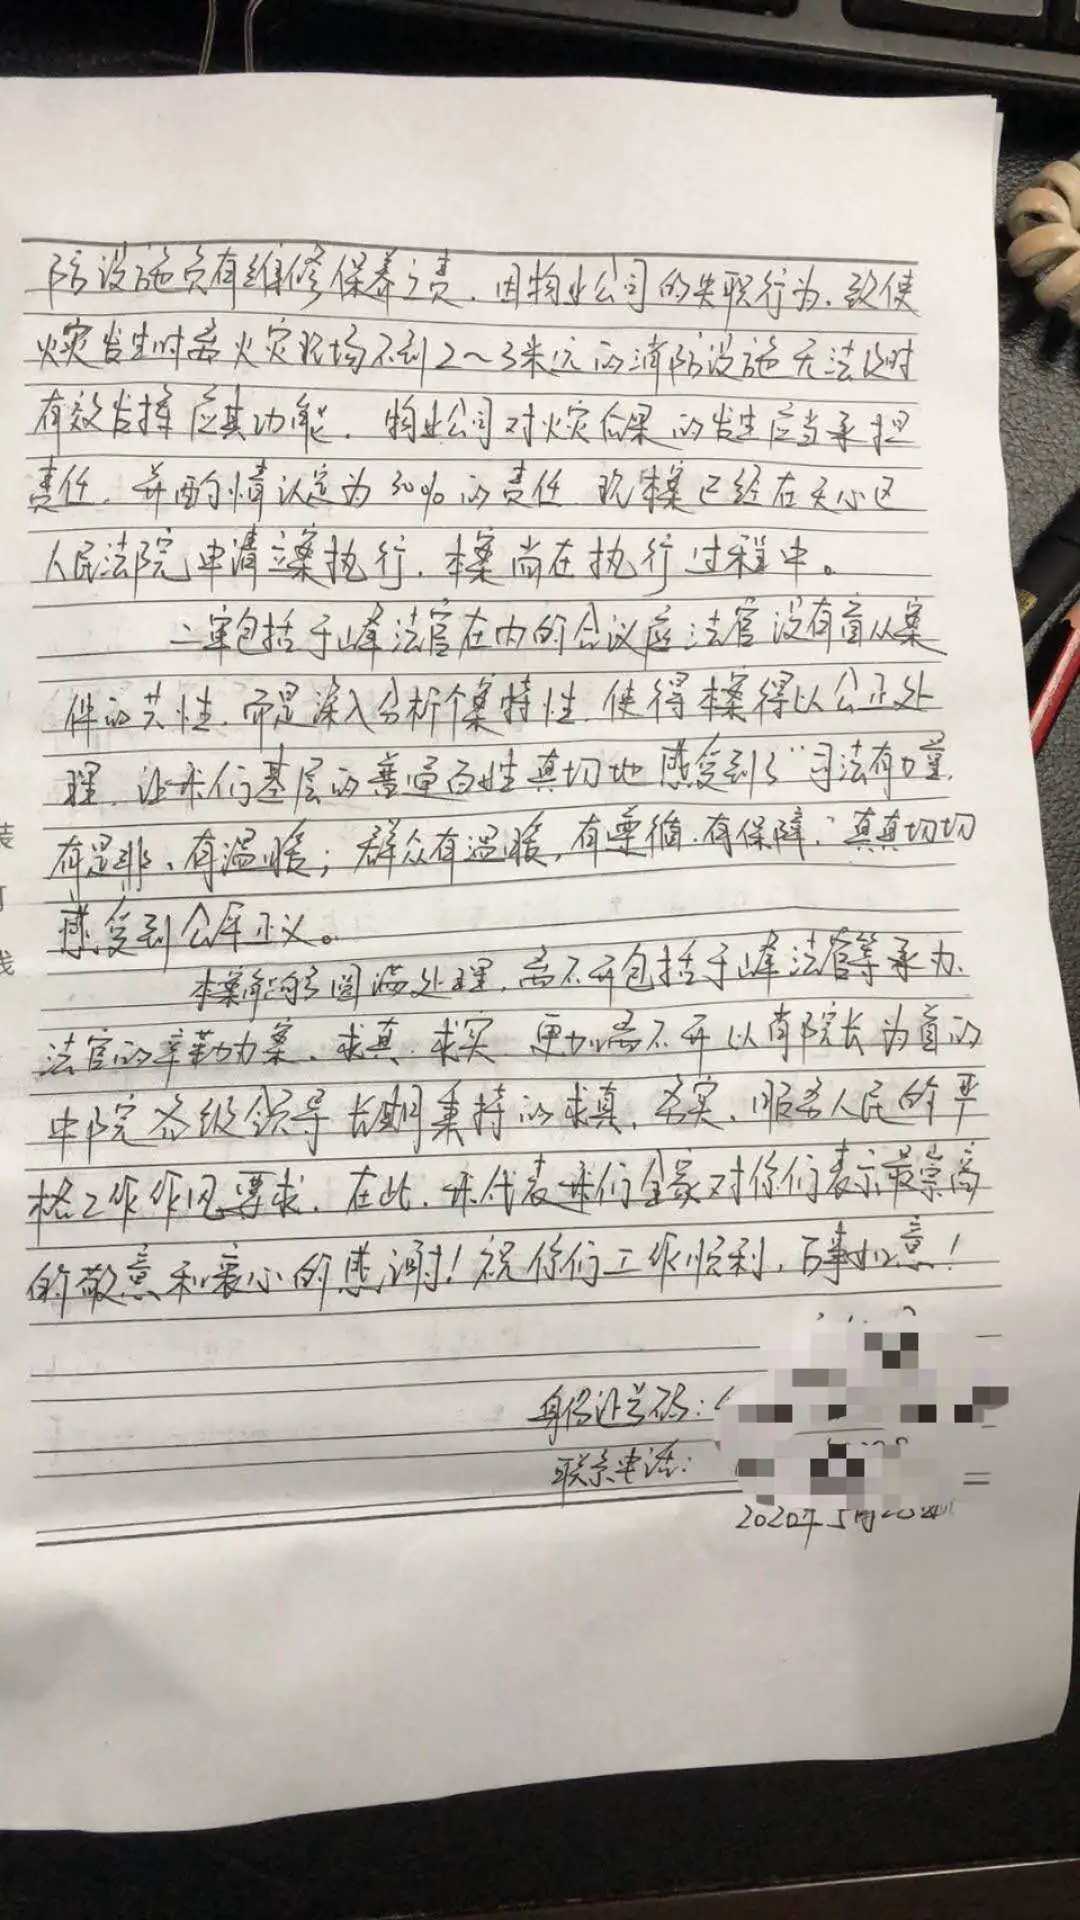 防设施负有维修保养之责，因物业公司的失职行为，致使
火灾发生时离火灾现场不到2～3米远的消防设施无法及时
有效发挥应其功能，物业公司对火灾后果的发生应当承担
责任，并酌情认定为30%的责任，现本案已经在天心区
人民法院申请立案执行，本案尚在执行过程中。
二审包括于峰法官在内的合议庭法官没有盲从案
件的共性，而是深入分析个案特性，使得本案得以公正处
理，让我们基层的普通百姓真切地感受到了“司法有力量，
有是非、有温暖；群众有温暖，有尊循，有保障”真真切切
感受到公平正义。
本案能够圆满处理，离不开包括于峰法官等承办
法官的辛勤办案、求真、求实，更加离不开以肖院长为首的
中院各级领导长期秉持的求真、务实、服务人民的严
格工作作风要求，在此，我代表我们全家对你们表示最崇高
的敬意和衷心的感谢！祝你们工作顺利，百事如意！
身份证号码：
联系电话：
2020年5月